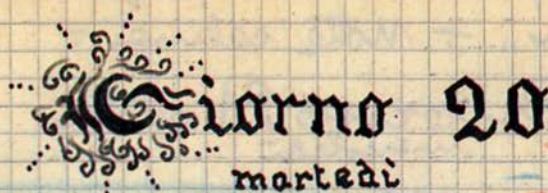 Giorno 20
martedì